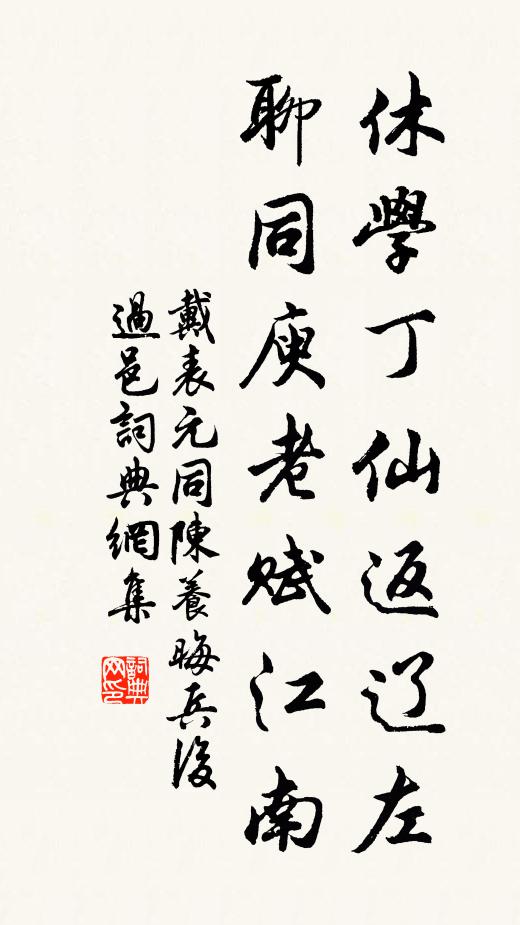 休學丁仙返辽左
聊同庾老賦江南
戴表元同陳養晦兵後
過邑詞典網集
詞典
网印